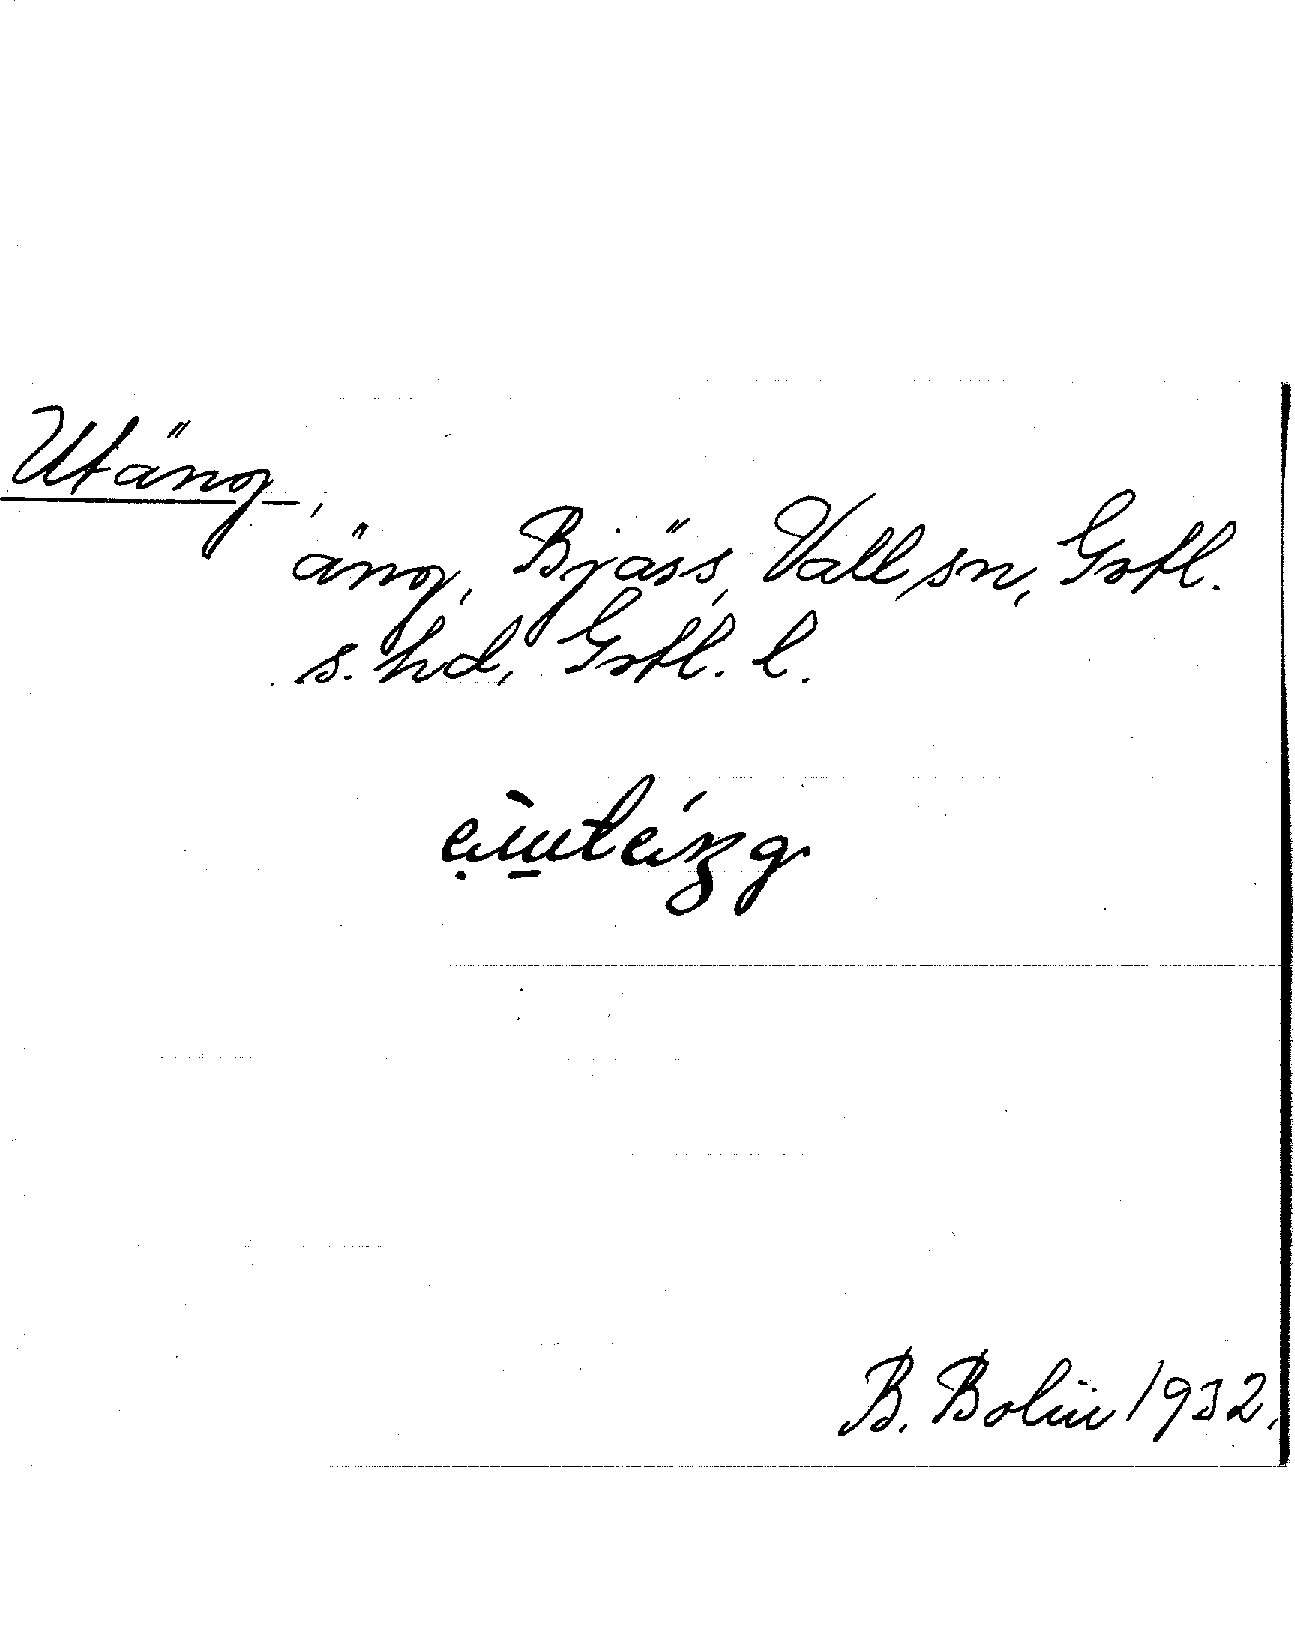 Utäng,
äng, Bjäss, Vall sn, Gotl.
s. hd, Gotl. l.
B. Bolin 1932.